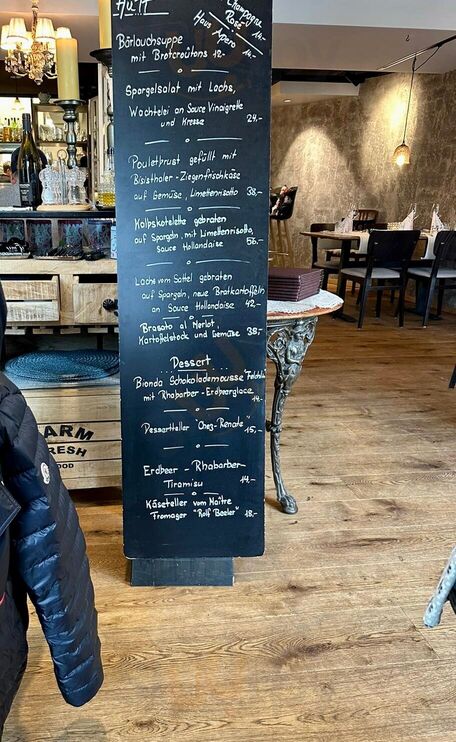 Hü-H
Champagner
Rosé 14.-
Haus Apero 14.-
Bärlauchsuppe
mit Brotcroûtons 12.-
Spargelsalat mit Lachs,
Wachtelei an Sauce Vinaigrette
und Kresse 24.-
Pouletbrust gefüllt mit
Bisisthaler-Ziegenfrischkäse
auf Gemüse, Limettenrisotto 38.-
Kalbskotelette gebraten
auf Spargeln, mit Limettenrisotto,
Sauce Hollandaise 56.-
Lachs vom Sattel gebraten
auf Spargeln, neue Bratkartoffeln
an Sauce Hollandaise 42.-
Brasato al Merlot,
Kartoffelstock und Gemüse 38.-
Dessert
Bionda Schokolademousse "Felchlin"
mit Rhabarber-Erdbeerglace 14.-
Dessertteller "Chez-Renate" 15.-
Erdbeer-Rhabarber-
Tiramisu 14.-
Käseteller vom Maître
Fromager "Rolf Beeler" 18.-
ARM
RESH
FOOD